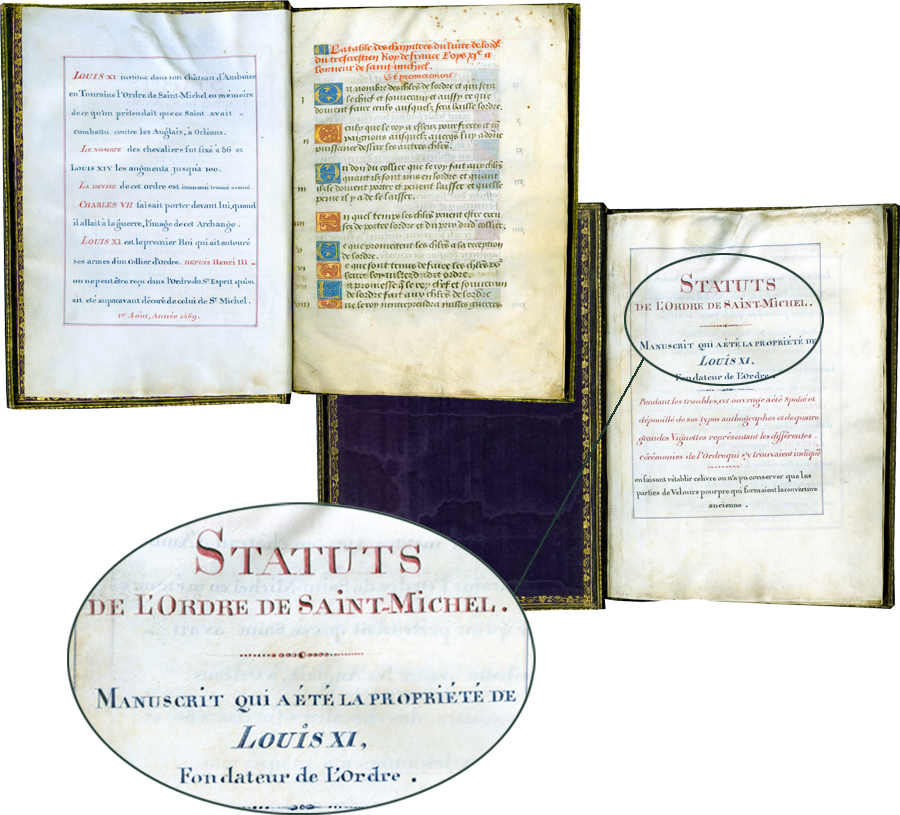 LOUIS XI institua dans son Château d'Amboise
en Touraine l'Ordre de Saint-Michel en mémoire
de ce qu'on prétendait que ce Saint avait
combattu contre les Anglais, à Orléans.
LE NOMBRE des chevaliers fut fixé à 36 et
LOUIS XIV les augmenta jusqu'à 100.
LA DEVISE de cet ordre est
CHARLES VII faisait porter devant lui, quand
il allait à la guerre, l'image de cet Archange.
LOUIS XI est le premier Roi qui ait entouré
ses armes d'un collier d'Ordre. DEPUIS Henri III
on ne peut être reçu dans l'Ordre du St. Esprit qu'on
ait été auparavant décoré de celui de St. Michel.
1er Août, Année 1469.
La table des chappitres du livre de lordre
du treschrestien Roy de france Loys XIe a
lonneur de saint michel.
Et premierement
Du nombre des chlrs de lordre et qui sera
le chief et souverain et aussy ce que
doivent faire ceulx ausquelz sera baille lordre.
Ceulx que le roy a esleuz pour freres et
compaignons ausquelz avecques luy a done
puissance
Du don du collier que le roy fait aux chlrs
quant ilz sont mis en lordre et quant
ilz le doivent porter et pevent laisser et quelle
peine il y a de le laisser.
En quel temps les chlrs pevent estre excu
sez de porter lordre et du pris dud collier.
Que promettent les chlrs a la reception
de lordre.
Que sont tenus de faire les chlrs
La promesse que le roy chef et souverain
de lordre fait aux chlrs de lordre
Que le roy nentreprendra nulles guerres
STATUTS
DE L'ORDRE DE SAINT-MICHEL.
MANUSCRIT QUI A ÉTÉ LA PROPRIÉTÉ DE
LOUIS XI,
Fondateur de L'Ordre.
Pendant les troubles, cet ouvrage a été Spolié et
dépouillé de ses types authographes et de quatre
grandes Vignettes représentant les différentes
cérémonies de l'Ordre qui s'y trouvaient indiqué
en faisant rétablir ce livre on n'a pu conserver que les
parties de Velours pourpre qui formaient la couverture
ancienne.
STATUTS
DE L'ORDRE DE SAINT-MICHEL.
MANUSCRIT QUI A ÉTÉ LA PROPRIÉTÉ DE
LOUIS XI,
Fondateur de L'Ordre.